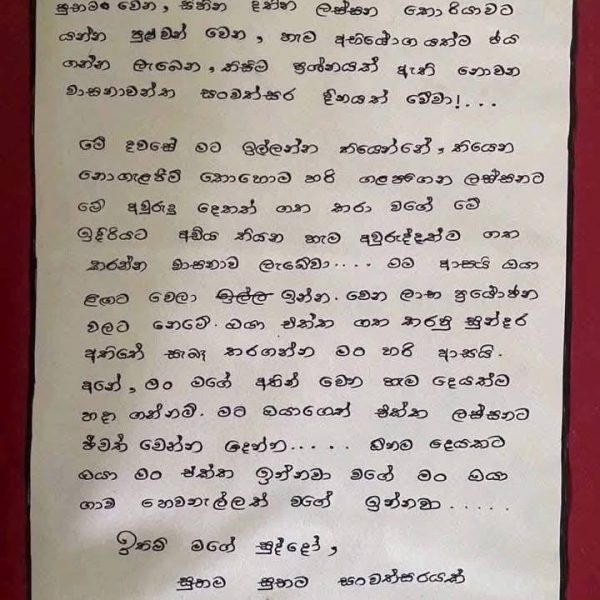 සුභමං වෙන, සිහින දකින ලස්සන කොරියාවට
යන්න පුළුවන් වෙන, හැම අභියෝගයක්ම ජය
ගන්න ලැබෙන, කිසිම ප්‍රශ්නයක් ඇති නොවන
වාසනාවන්ත සංවත්සර දිනයක් වේවා!...
මේ දවසේ මට ඉල්ලන්න තියෙන්නේ, තියෙන
නොගැලපීම් කොහොම හරි ගලපගෙන ලස්සනට
මේ අවුරුදු දෙකත් ගත කරා වගේ මේ
ඉදිරියට අඩිය තියන හැම අවුරුද්දක්ම ගත
කරන්න වාසනාව ලැබේවා.... මම ආසයි ඔයා
ළඟට වෙලා ඉන්න. වෙන ලාභ ප්‍රයෝජන
වලට නෙමේ. ඔයා එක්ක ගත කරපු සුන්දර
අතීතේ සැබෑ කරගන්න මං හරි ආසයි.
අනේ, මං මගේ අතින් වෙන හැම දෙයක්ම
හදා ගන්නම්. මට ඔයාගෙත් එක්ක ලස්සනට
ජීවත් වෙන්න දෙන්න..... ඕනම දෙයකට
ඔයා මං එක්ක ඉන්නවා වගේ මං ඔයා
ගාව හෙවනැල්ලක් වගේ ඉන්නවා.....
ඉතිම් මගේ සුද්දෝ,
සුභම සුභට සංවත්සරයක්